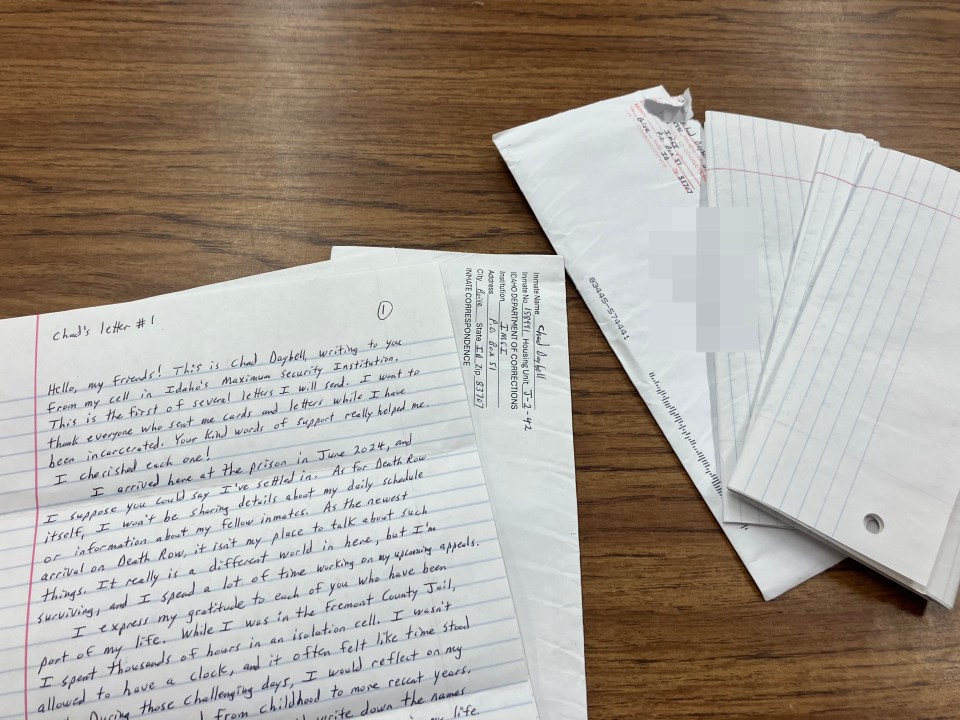 Chad's letter #1
1
Hello, my friends! This is Chad Daybell, writing to you
from my cell in Idaho's Maximum Security Institution.
This is the first of several letters I will send. I want to
thank everyone who sent me cards and letters while I have
been incarcerated. Your kind words of support really helped me.
I cherished each one!
I arrived here at the prison in June 2024, and
I suppose you could say I've settled in. As for Death Row
itself, I won't be sharing details about my daily schedule
or information about my fellow inmates. As the newest
arrival on Death Row, it isn't my place to talk about such
things. It really is a different world in here, but I'm
surviving, and I spend a lot of time working on my upcoming appeals.
I express my gratitude to each of you who have been
part of my life. While I was in the Fremont County Jail,
I spent thousands of hours in an isolation cell. I wasn't
allowed to have a clock, and it often felt like time stood
During those challenging days, I would reflect on my
from childhood to more recent years.
write down the names
my life
Inmate Name Chad Daybell
Inmate No 158991 Housing Unit J-2-42
IDAHO DEPARTMENT OF CORRECTIONS
Institution IMSI
Address P.O. Box 51
City Boise State Id Zip 83707
INMATE CORRESPONDENCE
IMSI
P.O. Box 51
Boise ID 83707
83445-574441